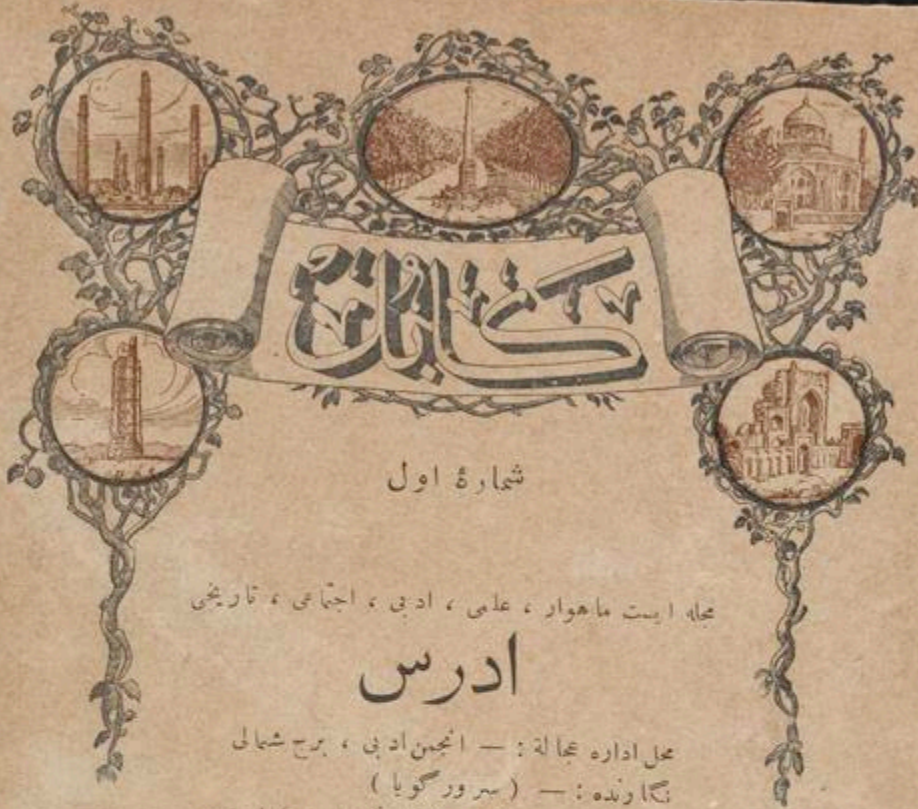 شمارهٔ اول
مجله ایست ماهوار ، علمی ، ادبی ، اجتماعی ، تاریخی
ادرس
محل اداره عجالة : — انجمن ادبی ، برج شمالی
نگارنده : — ( سرور گویا )